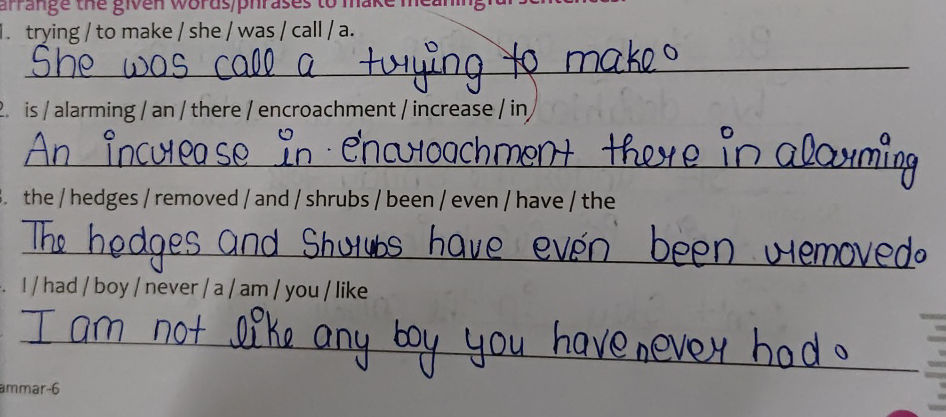 arrange the given words/phrases to make meaningful sentences.
1. trying / to make / she / was / call / a.
She was call a trying to make.
2. is / alarming / an / there / encroachment / increase / in
An increase in encroachment there in alarming
. the / hedges / removed / and / shrubs / been / even / have / the
The hedges and Shrubs have even been removed.
. I / had / boy / never / a / am / you / like
I am not like any boy you have never had.
ammar-6